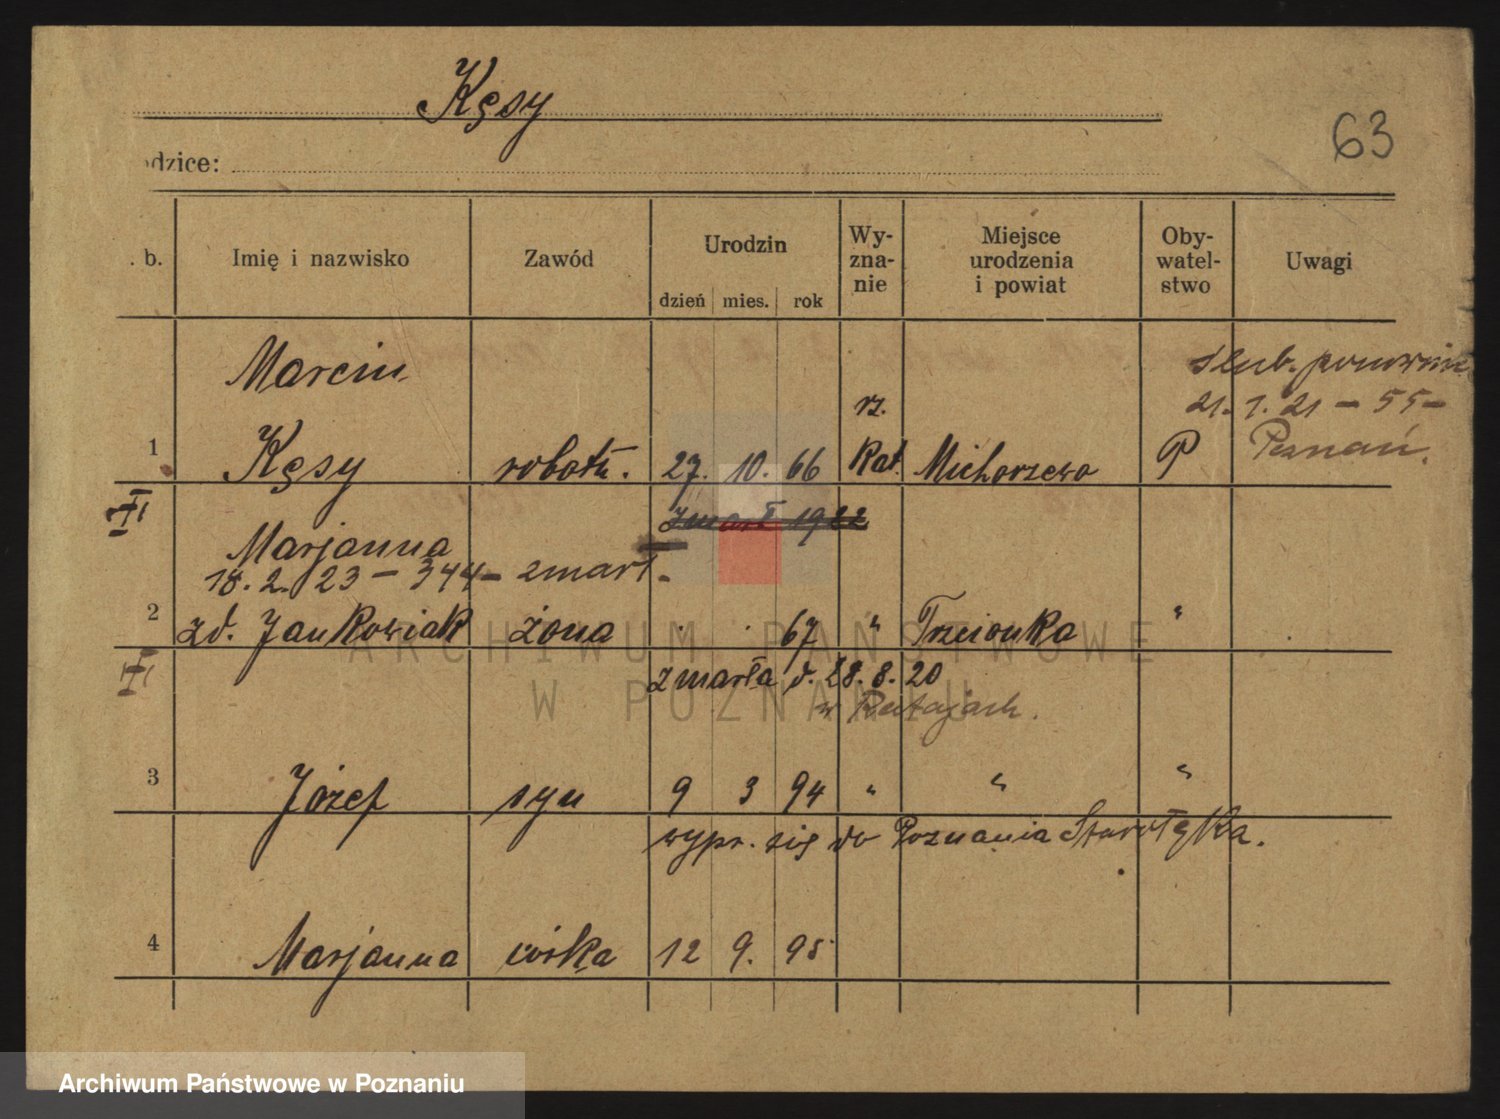 Kęsy
63
odzice:
. b. Imię i nazwisko Zawód Urodzin dzień mies. rok Wy-zna-nie Miejsce urodzenia i powiat Oby-watel-stwo Uwagi
Marcin
ślub. ponownie
rz. 21. 1. 21 – 55 –
1 Kęsy robotn. 27. 10. 66 Kat. Michorzewo P Poznań.
II zmarł 1922
Marjanna
18. 2. 23 – 344 – zmarł.
2 zd. Jankowiak żona 67 " Trzcionka "
II zmarła d. 28. 8. 20
w Ratajach.
3 Józef syn 9 3 94 " " "
wypr. się do Poznania Starołęka.
4 Marjanna córka 12 9. 98
ARCHIWUM PAŃSTWOWE
W POZNANIU
Archiwum Państwowe w Poznaniu